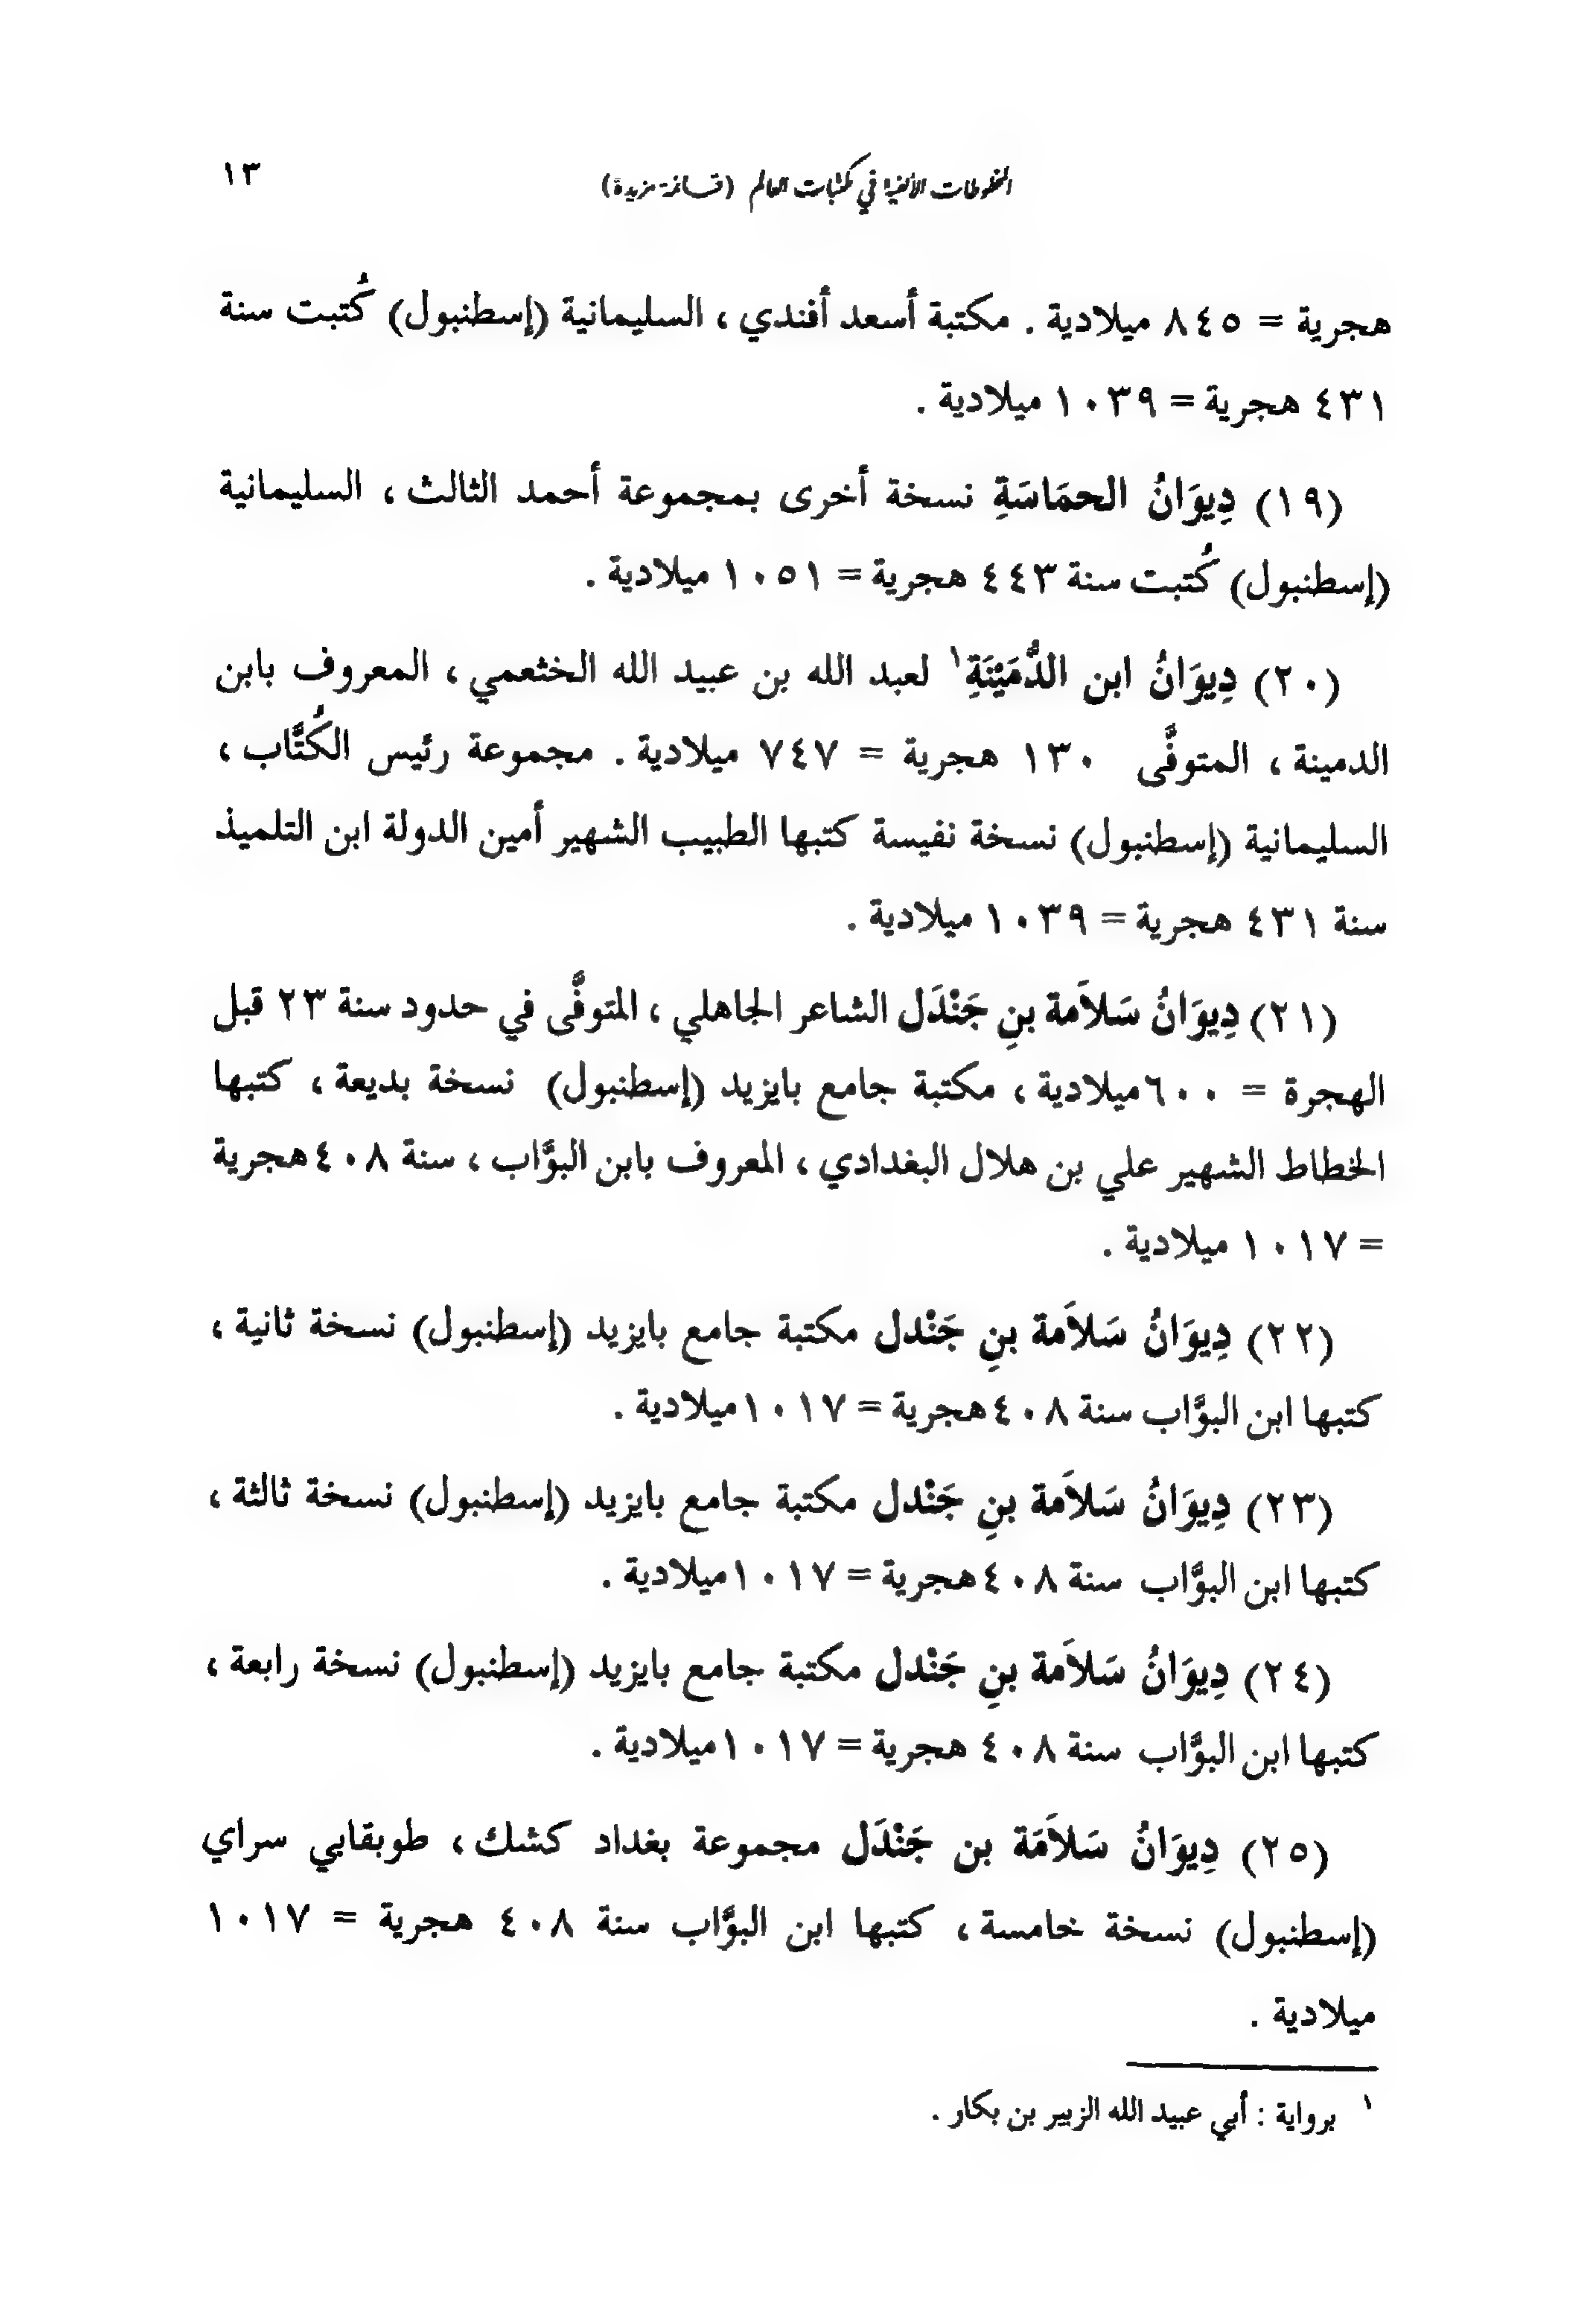 المخطوطات الألفية في مكتبات العالم (قائمة مزيدة) ١٣
هجرية = ٨٤٥ ميلادية . مكتبة أسعد أفندي ، السليمانية (إسطنبول) كُتبت سنة
٤٣١ هجرية = ١٠٣٩ ميلادية .
(١٩) دِيوَانُ الحمَاسَةِ نسخة أخرى بمجموعة أحمد الثالث ، السليمانية
(إسطنبول) كُتبت سنة ٤٤٣ هجرية = ١٠٥١ ميلادية .
(٢٠) دِيوَانُ ابن الدُّمَيْنَةِ١ لعبد الله بن عبيد الله الخثعمي ، المعروف بابن
الدمينة ، المتوفَّى ١٣٠ هجرية = ٧٤٧ ميلادية . مجموعة رئيس الكُتَّاب ،
السليمانية (إسطنبول) نسخة نفيسة كتبها الطبيب الشهير أمين الدولة ابن التلميذ
سنة ٤٣١ هجرية = ١٠٣٩ ميلادية .
(٢١) دِيوَانُ سَلاَمة بنِ جَنْدَل الشاعر الجاهلي ، المتوفَّى في حدود سنة ٢٣ قبل
الهجرة = ٦٠٠ميلادية ، مكتبة جامع بايزيد (إسطنبول) نسخة بديعة ، كتبها
الخطاط الشهير علي بن هلال البغدادي ، المعروف بابن البوَّاب ، سنة ٤٠٨هجرية
= ١٠١٧ ميلادية .
(٢٢) دِيوَانُ سَلاَمة بنِ جَنْدل مكتبة جامع بايزيد (إسطنبول) نسخة ثانية ،
كتبها ابن البوَّاب سنة ٤٠٨هجرية = ١٠١٧ميلادية .
(٢٣) دِيوَانُ سَلاَمة بنِ جَنْدل مكتبة جامع بايزيد (إسطنبول) نسخة ثالثة ،
كتبها ابن البوَّاب سنة ٤٠٨هجرية = ١٠١٧ميلادية .
(٢٤) دِيوَانُ سَلاَمة بنِ جَنْدل مكتبة جامع بايزيد (إسطنبول) نسخة رابعة ،
كتبها ابن البوَّاب سنة ٤٠٨ هجرية = ١٠١٧ميلادية .
(٢٥) دِيوَانُ سَلاَمَة بن جَنْدَل مجموعة بغداد كشك ، طوبقابي سراي
(إسطنبول) نسخة خامسة ، كتبها ابن البوَّاب سنة ٤٠٨ هجرية = ١٠١٧
ميلادية .
١ برواية : أبي عبيد الله الزبير بن بكار .